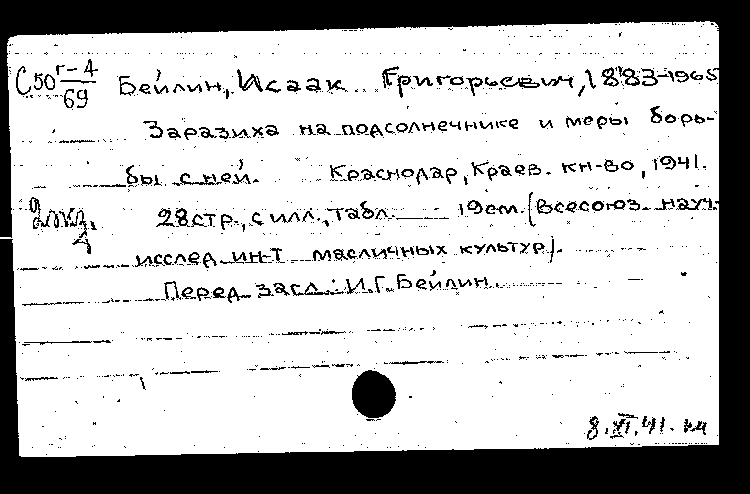 С50 г-4/69 Бейлин, Исаак Григорьевич, 1883-1965
Заразиха на подсолнечнике и меры борь-
бы с ней. Краснодар, Краев. кн-во, 1941.
2 экз. 28 стр., с илл., табл. 19 см. (Всесоюз. науч.-
исслед. ин-т масличных культур).
Перед загл.: И.Г. Бейлин.
8.XI.41.